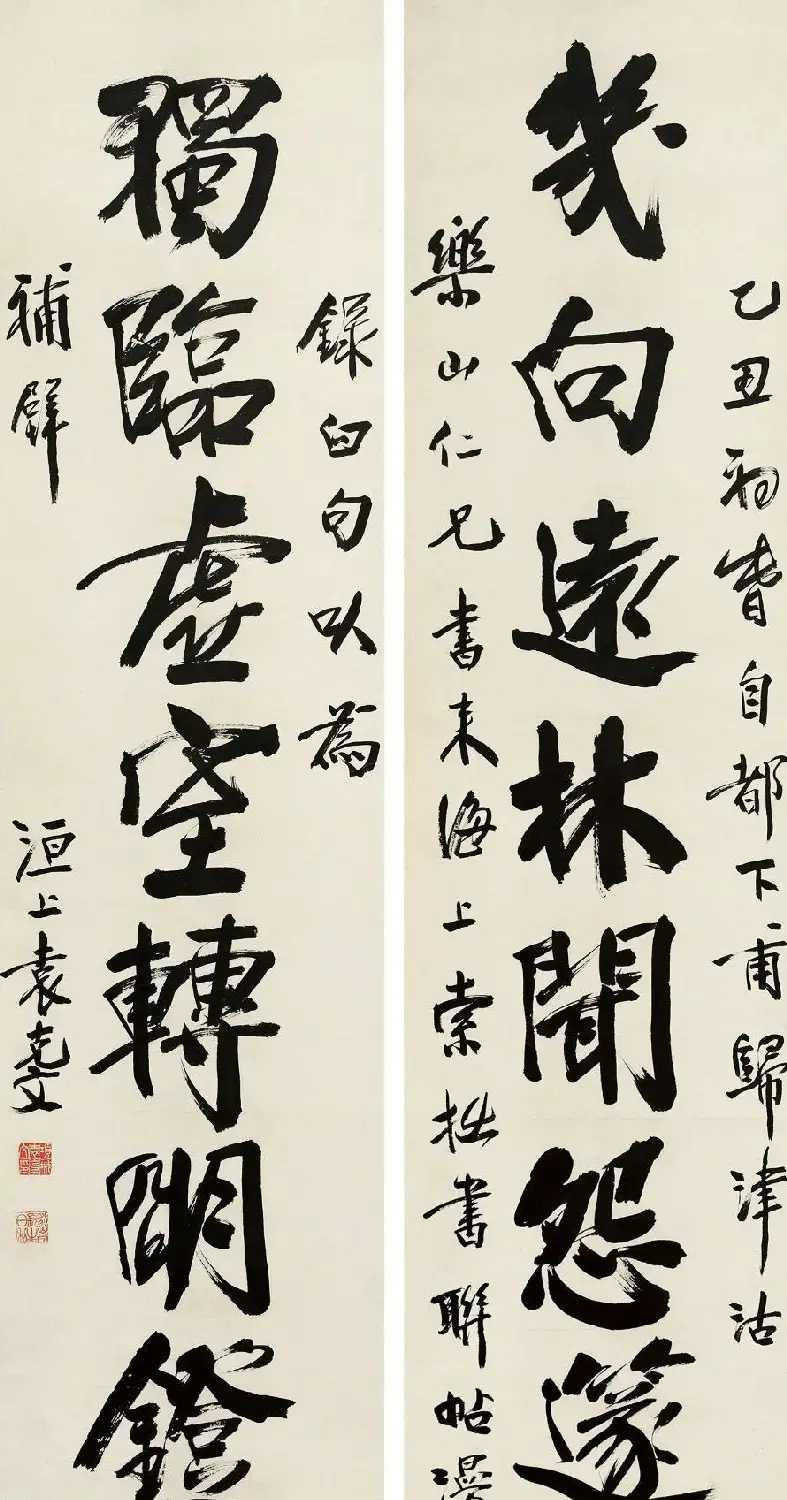 乙丑初春自都下甫歸津沽
幾向遠林聞怨篴
樂山仁兄書來海上索拙書聯帖漫
錄臼句以為
獨臨虛室轉明鐙
補壁
洹上袁克文